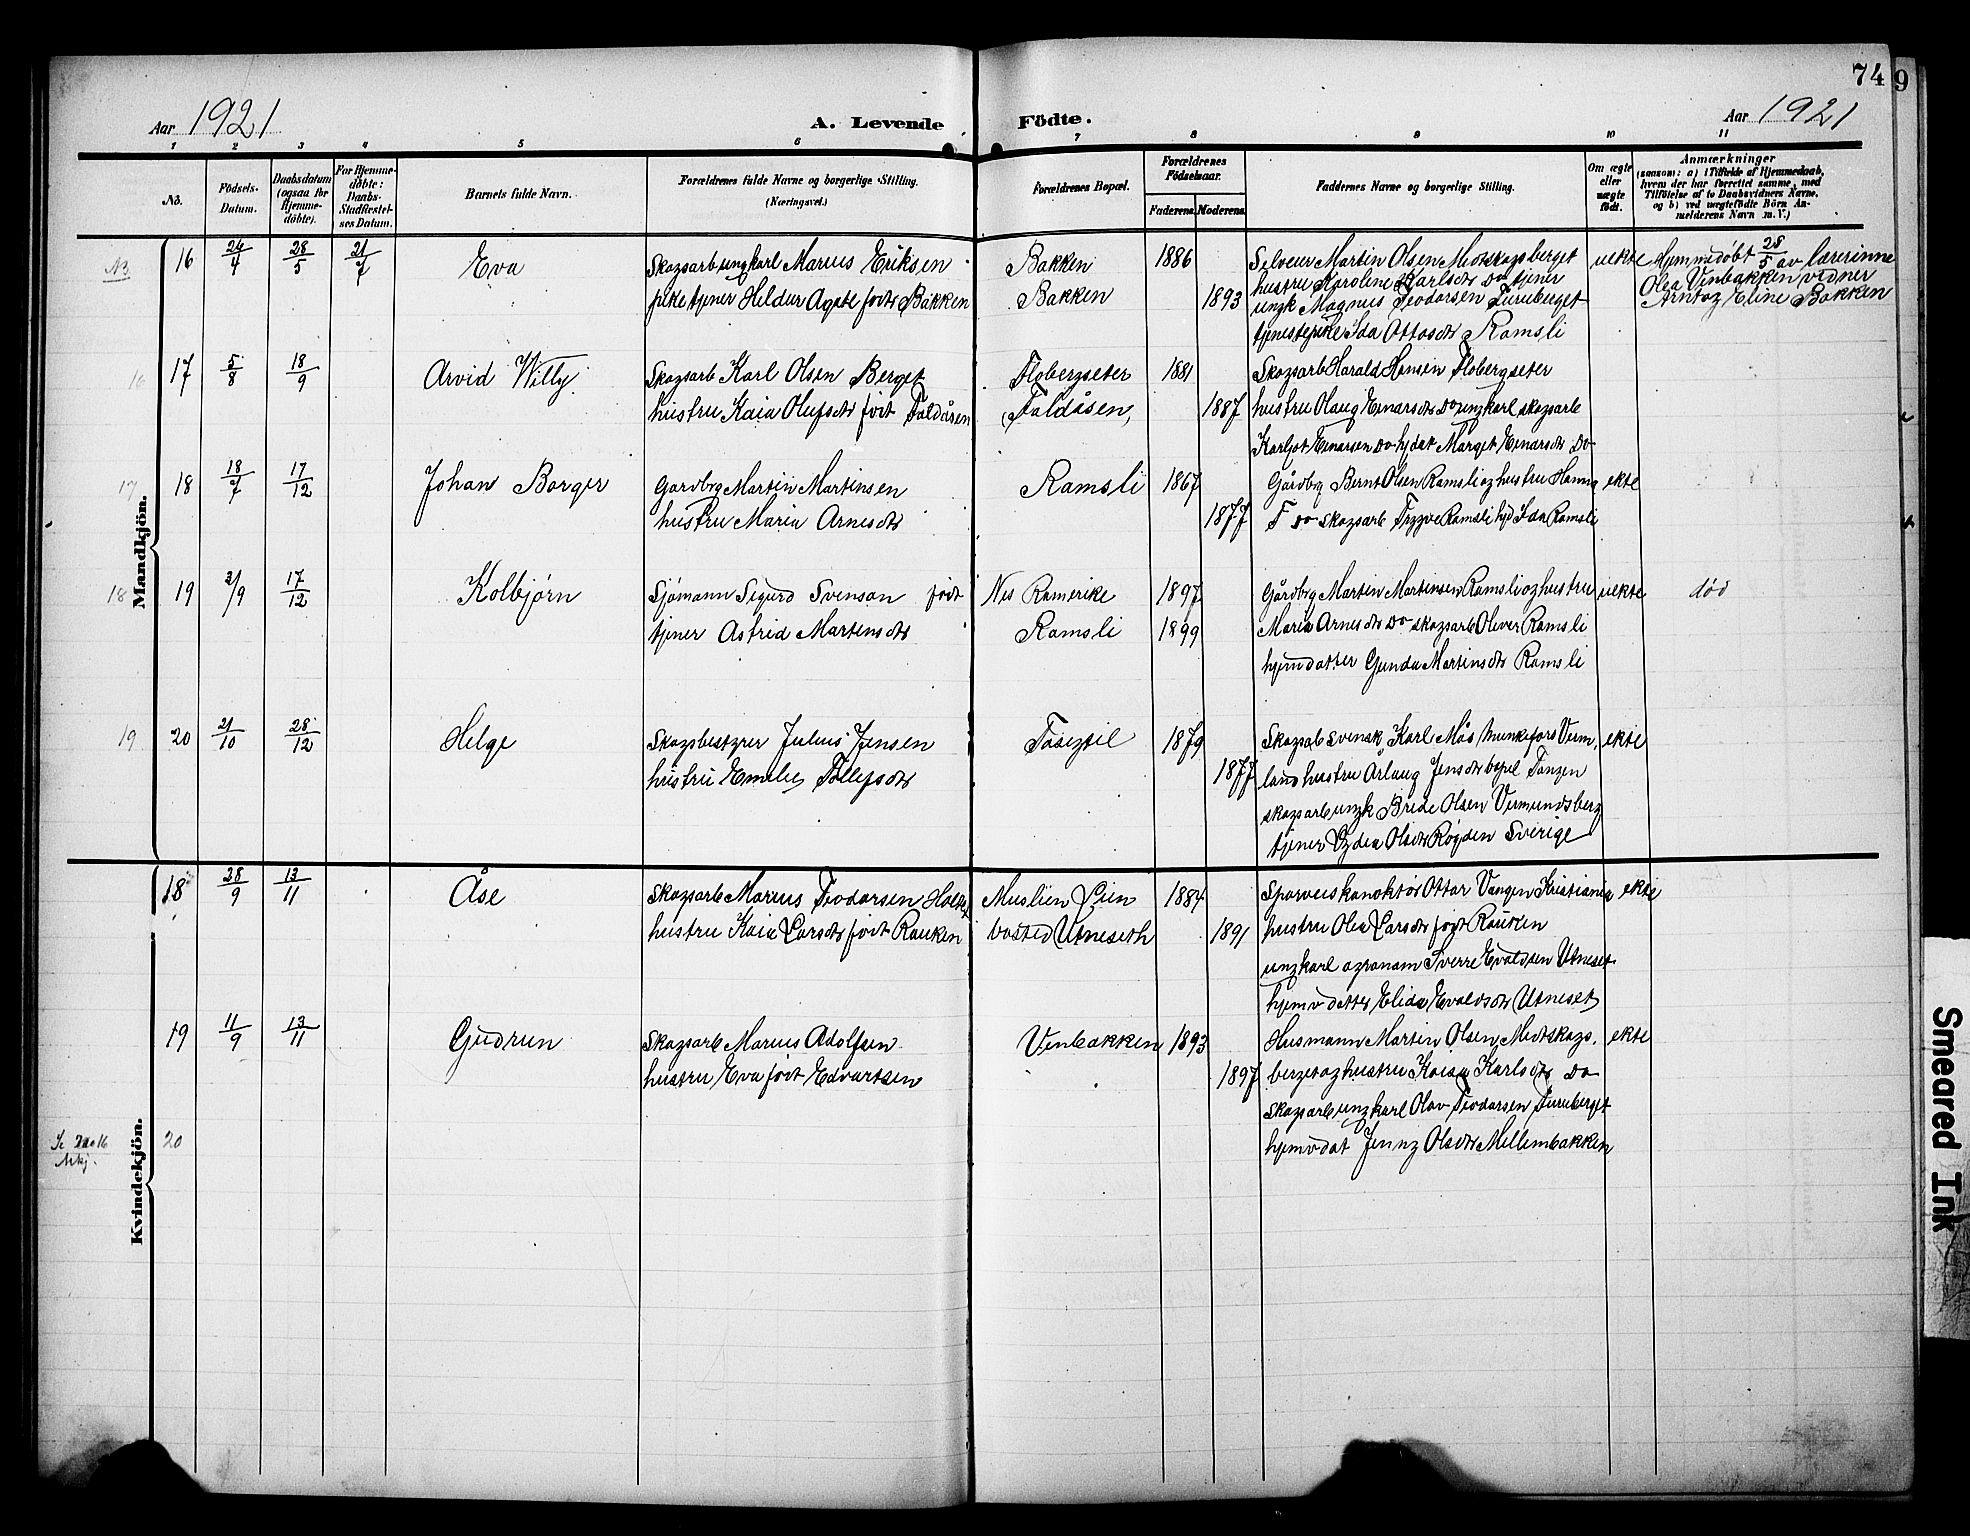 74
9
Aar 1921
A. Levende
Födte.
Aar 1921
1 2 3 4 5 6 7 8 9 10 11
No.
Födsels-Datum.
Daabsdatum (ogsaa for Hjemme-döbte).
For Hjemme-döbte: Daabs-Stadfæstel-ses Datum.
Barnets fulde Navn.
Forældrenes fulde Navne og borgerlige Stilling.
(Næringsvei.)
Forældrenes Bopæl.
Forældrenes Födselsaar.
Faderens. Moderens.
Faddernes Navne og borgerlige Stilling.
Om ægte eller uægte födt.
Anmærkninger
(saasom: a) i Tilfælde af Hjemmedaab, hvem der har forrettet samme, med Tilföielse af to Daabsvidners Navne, og b) ved uægtefödte Börn Anmelderens Navn m. V.)
Mandkjön.
NB
16 24/4 28/5 21/7 Eva
Skogsarb ungkarl Marius Eriksen
pike tjener Heldur Agate født Bakken
Bakken 1886
Bakken 1893
Selveier Martin Olsen Midtskogsberget
hustru Karoline Karlsdtr Do tjener
ungk Magnus Teodorsen Furuberget
tjenestepike Ida Ottosdtr Ramsli
uekte
Hjemmedøbt 28/5 av lærerinne
Olea Vinbakken vidner
Arnt og Eline Bakken
16
17 5/8 18/9 Arvid Willy
Skogsarb Karl Olsen Berget
hustru Kaia Olufsdtr født Faldåsen
Flobergseter 1881
Faldåsen, 1887
Skogsarb Harald Hansen Flobergseter
hustru Olaug Einarsdtr Do ungkarl skogsarb
Karljot Einarsen Do hjdat Marget Einarsdtr Do
17
18 18/7 17/12 Johan Borger
Gardbrg Martin Martinsen
hustru Maria Arnesdtr
Ramsli 1867
1877
Gårdbrg Bernt Olsen Ramsli og hustru Hanna
F Do skogsarb Trygve Ramsli hjd Ida Ramsli
ekte
18
19 2/9 17/12 Kolbjørn
Sjømann Sigurd Svenson født
tjener Astrid Martinsdtr
Nes Romerike 1897
Ramsli 1899
Gårdbrg Martin Martinsen Ramsli og hustru
Maria Arnesdtr Do skogsarb Oliver Ramsli
hjemdatter Gunda Martinsdtr Ramsli
uekte
død
19
20 21/10 28/12 Helge
Skogsbestyrer Julius Jensen
hustru Emelie Tollefsdtr
1879
1877
Skogsarb svensk Karl Mås Munkefors Verm.
land hustru Arlaug Jensdtr bopel Tangen
skogsarb ungk Brede Olsen Vermundsberg
tjener Lydia Olsdtr Røgden Sverige
ekte
Kvindekjön.
18 28/9 13/11 Åse
Skogsarb Marius Teodorsen
hustru Kaia Larsdtr født Rauken
Muslien Lien 1884
bosted Utneseth 1891
Sporveiskonoktør Ottar Vangen Kristiania
hustru Olea Larsdtr født Rauken
ungkarl agronom Sverre Evaldsen Utneset
hjemv datter Elida Evaldsdtr Utneset
ekte
19 11/9 13/11 Gudrun
Skogsarb Marius Adolfsen
hustru Eva født Edvartsen
Vinbakken 1893
1897
Husmann Martin Olsen Midtskogs.
berget og hustru Kaisa Karlsdtr Do
skogsarb ungkarl Olav Teodorsen Furuberget
hjemv dat Jenny Olsdtr Mellembakken
ekte
Se No 16
Mkj.
20
Smeared Ink